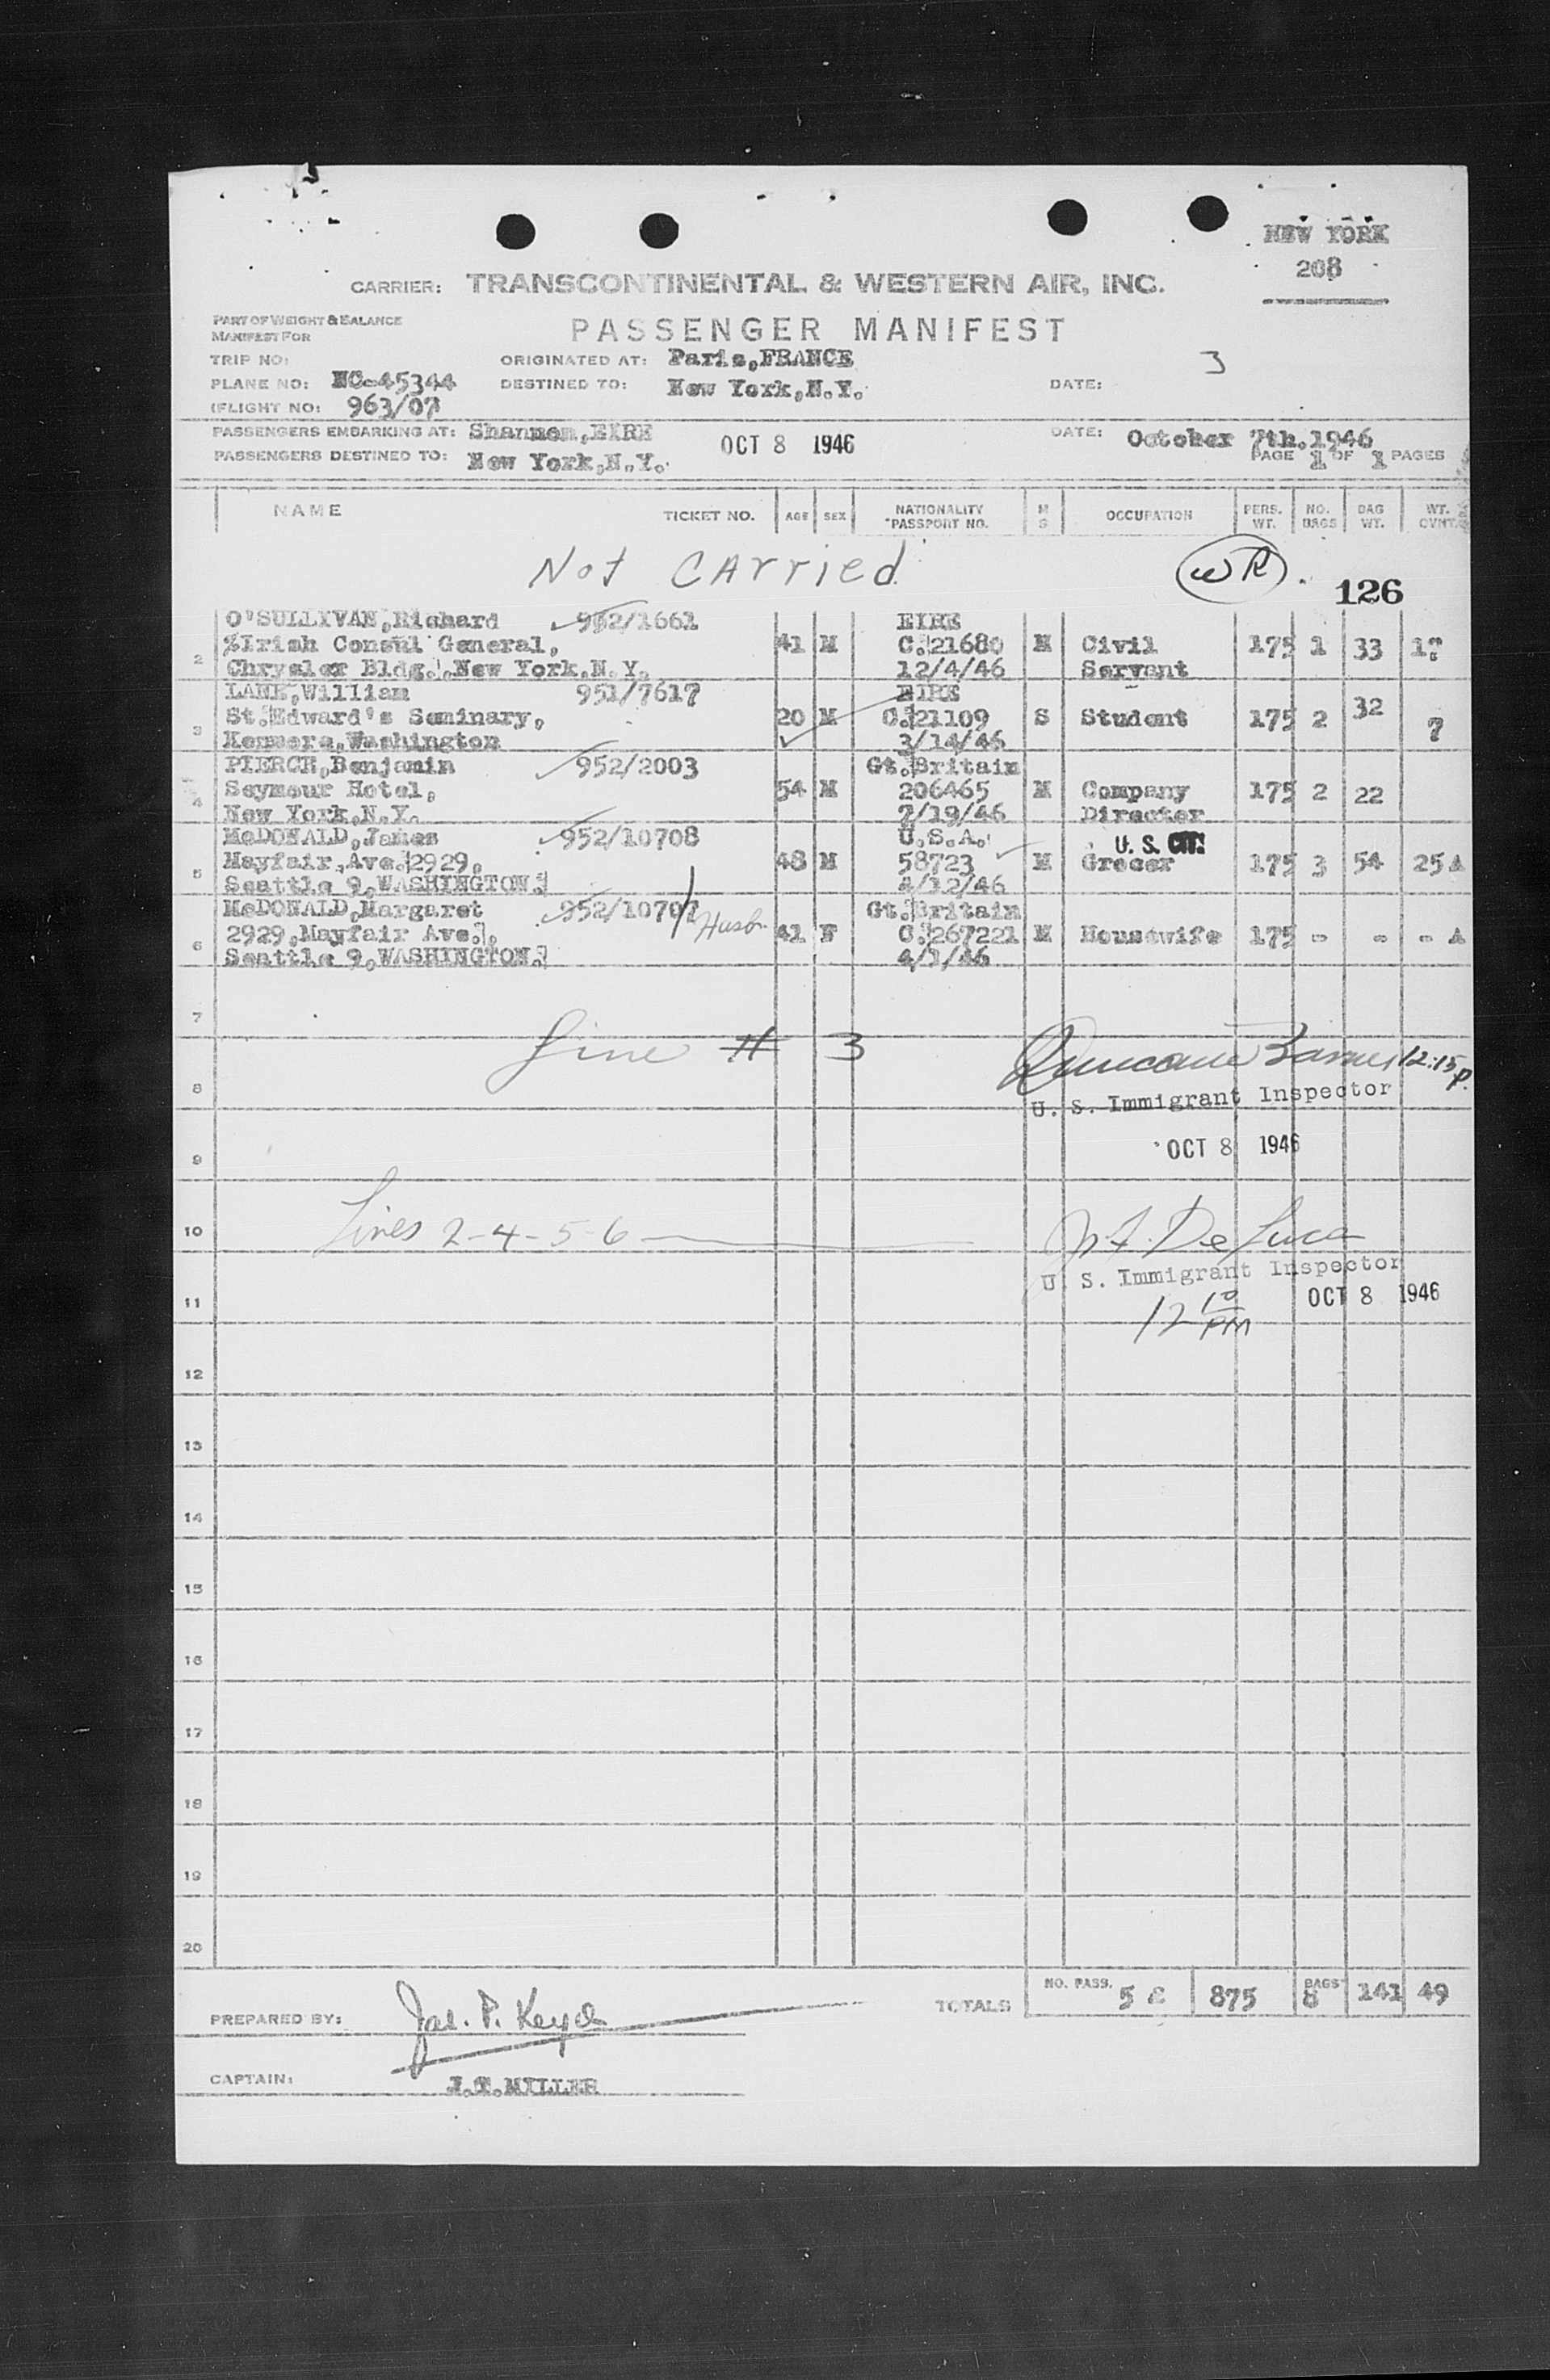 NEW YORK
208
CARRIER: TRANSCONTINENTAL & WESTERN AIR, INC.
PART OF WEIGHT & BALANCE
MANIFEST FOR
PASSENGER MANIFEST
TRIP NO: ORIGINATED AT: Paris,FRANCE 3
PLANE NO: NC-45344 DESTINED TO: New York,N.Y. DATE:
(FLIGHT NO: 963/07
PASSENGERS EMBARKING AT: Shannon,EIRE OCT 8 1946 DATE: October 7th.1946
PASSENGERS DESTINED TO: New York,N.Y. PAGE 1 OF 1 PAGES
NAME TICKET NO. AGE SEX NATIONALITY M OCCUPATION PERS. NO. BAG WT.
*PASSPORT NO. S WT. BAGS WT.
Not CArried WR 126
O'SULLIVAN,Richard 952/1661 EIRE
%Irish Consul General, 41 M C.21680 M Civil 175 1 33 17
2 Chrysler Bldg.,New York,N.Y. 12/4/46 Servant
LANE,William 951/7617 EIRE
St.Edward's Seminary, 20 M C.21109 S Student 175 2 32 7
3 Kenmore,Washington 3/14/46
PIERCE,Benjamin 952/2003 Gt.Britain
Seymour Hotel, 54 M 206465 M Company 175 2 22
4 New York,N.Y. 7/19/46 Director
McDONALD,James 952/10708 U.S.A. U. S. CIT.
Mayfair,Ave.2929, 48 M 58723 M Grocer 175 3 54 25 A
5 Seattle 9,WASHINGTON. 4/12/46
McDONALD,Margaret 952/10707 Husb. Gt.Britain
2929,Mayfair Ave., 41 F C.267221 M Housewife 175 - - - A
6 Seattle 9,WASHINGTON. 4/1/46
7
Line # 3 12:15 P.
8 U. S. Immigrant Inspector
9 OCT 8 1946
10 Lines 2-4-5-6 De Luca
U. S. Immigrant Inspector
11 OCT 8 1946
12 10 PM
12
13
14
15
16
17
18
19
20
TOTALS NO. PASS. 5 875 BAGS 8 141 49
PREPARED BY: Jas. P.
CAPTAIN: J.T.MILLER